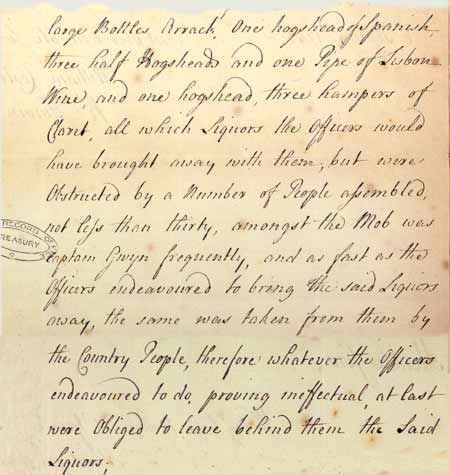 large Bottles Arrack, One hogshead of Spanish
three half Hogsheads and one Pipe of Lisbon
Wine, and one hogshead, three hampers of
Claret, all which Liquors the Officers would
have brought away with them, but were
Obstructed by a Number of People assembled,
not less than thirty, amongst the Mob was
Captain Gwyn frequently, and as fast as the
Officers endeavoured to bring the said Liquors
away, the same was taken from them by
the Country People, therefore whatever the Officers
endeavoured to do, proving ineffectual, at last
were Obliged to leave behind them the Said
Liquors;
RECORD
TREASURY